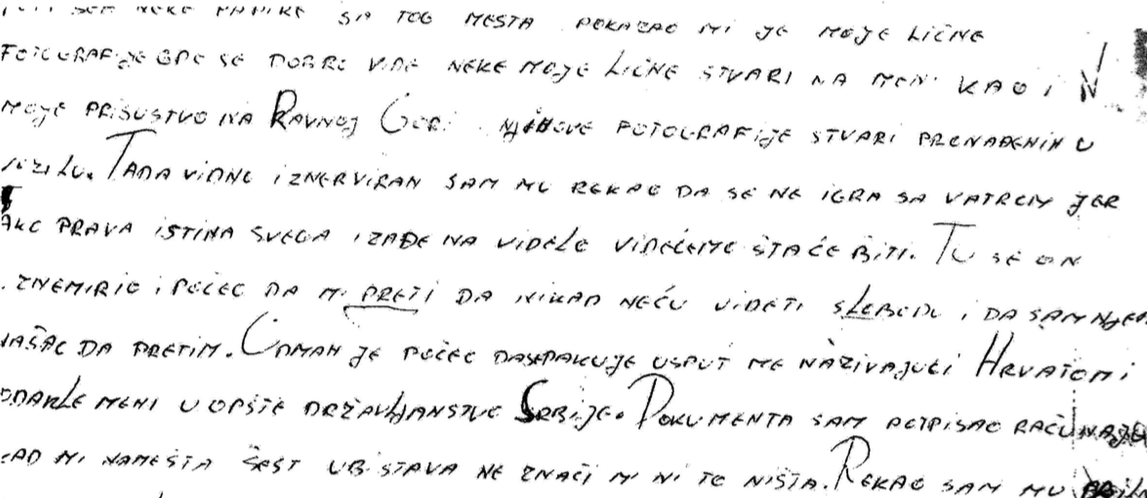 SAM NEKE PAPIRE SA TOG MESTA POKAZAO MI JE MOJE LIČNE
FOTOGRAFIJE GDE SE DOBRO VIDE NEKE MOJE LIČNE STVARI NA MENI KAO I
MOJE PRISUSTVO NA RAVNOJ GORI NJIHOVE FOTOGRAFIJE STVARI PRONAĐENIH U
VOZILU. TADA VIDNO IZNERVIRAN SAM MU REKAO DA SE NE IGRA SA VATROM JER
AKO PRAVA ISTINA SVEGA IZAĐE NA VIDELO VIDEĆEMO ŠTA ĆE BITI. TU SE ON
UZNEMIRIO I POČEO DA MI PRETI DA NIKAD NEĆU VIDETI SLOBODU I DA SAM NJEGA
NAŠAO DA PRETIM. ODMAH JE POČEO DA SE PAKUJE USPUT ME NAZIVAJUĆI HRVATOM I
ODAKLE MENI UOPŠTE DRŽAVLJANSTVO SRBIJE. DOKUMENTA SAM POTPISAO RAČUNAJUĆI
KAD MI NAMEŠTA ŠEST UBISTAVA NE ZNAČI MI NI TO NIŠTA. REKAO SAM MU